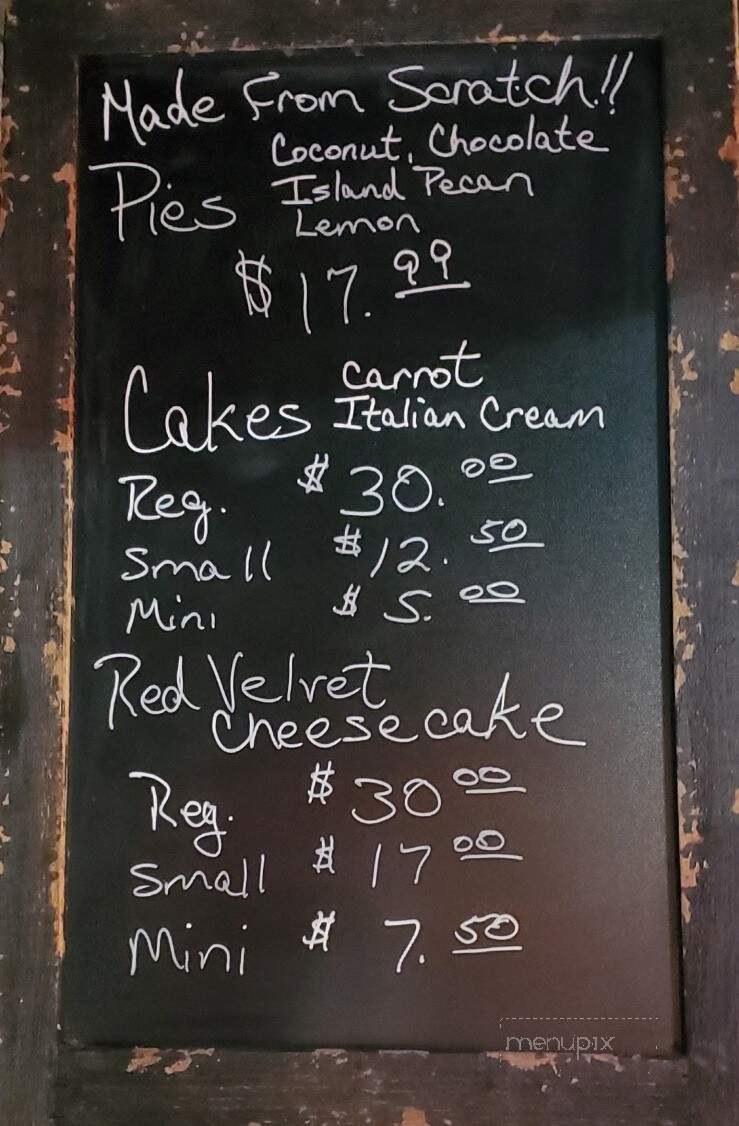 Made From Scratch!!
Pies Coconut, Chocolate
Island Pecan
Lemon
$17.99
Cakes Carrot
Italian Cream
Reg. $30.00
Small $12.50
Mini $5.00
Red Velvet
Cheesecake
Reg. $30 00
Small $17 00
Mini $7.50
menupix